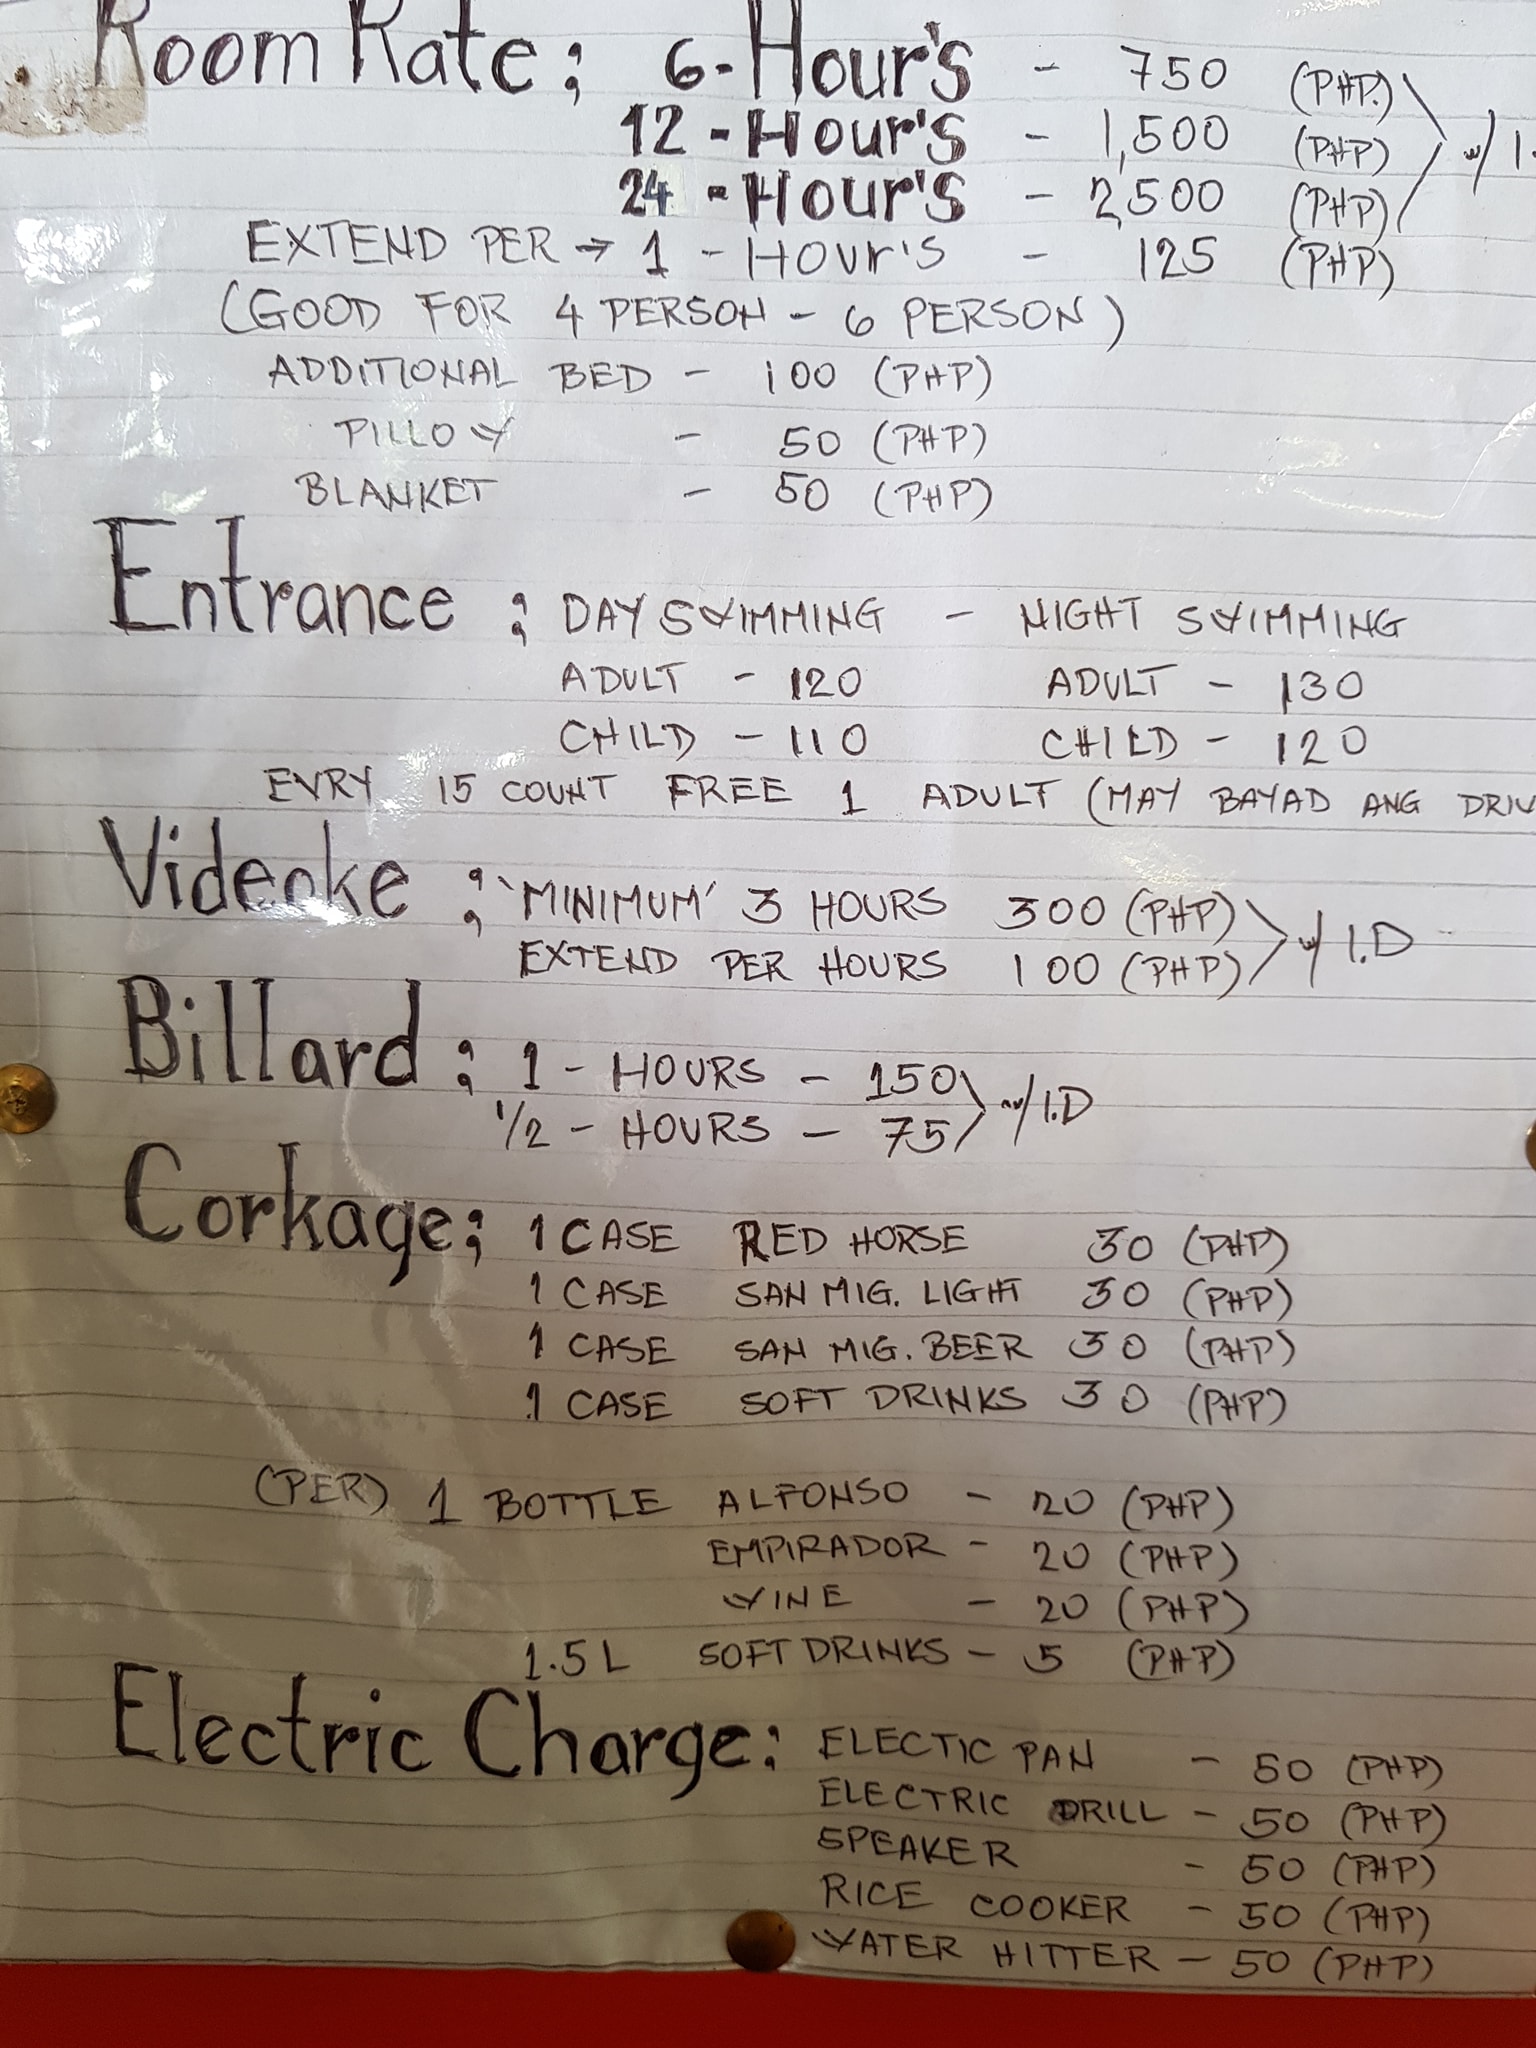 Room Rate: 6-Hour's - 750 (PHP.)
12-Hour's - 1,500 (PHP) w/ I.
24-Hour's - 2,500 (PHP)
EXTEND PER → 1 - HOUr'S - 125 (PHP)
(GOOD FOR 4 PERSON - 6 PERSON)
ADDITIONAL BED - 100 (PHP)
PILLOW - 50 (PHP)
BLANKET - 50 (PHP)
Entrance: DAY SWIMMING - NIGHT SWIMMING
ADULT - 120 ADULT - 130
CHILD - 110 CHILD - 120
EVRY 15 COUNT FREE 1 ADULT (MAY BAYAD ANG DRIV
Videoke: 'MINIMUM' 3 HOURS 300 (PHP) w/ I.D
EXTEND PER HOURS 100 (PHP)
Billard: 1 - HOURS - 150 w/ I.D
1/2 - HOURS - 75
Corkage: 1 CASE RED HORSE 30 (PHP)
1 CASE SAN MIG. LIGHT 30 (PHP)
1 CASE SAN MIG. BEER 30 (PHP)
1 CASE SOFT DRINKS 30 (PHP)
(PER) 1 BOTTLE ALFONSO - 20 (PHP)
EMPIRADOR - 20 (PHP)
WINE - 20 (PHP)
1.5 L SOFT DRINKS - 5 (PHP)
Electric Charge: ELECTIC PAN - 50 (PHP)
ELECTRIC DRILL - 50 (PHP)
SPEAKER - 50 (PHP)
RICE COOKER - 50 (PHP)
WATER HITTER - 50 (PHP)